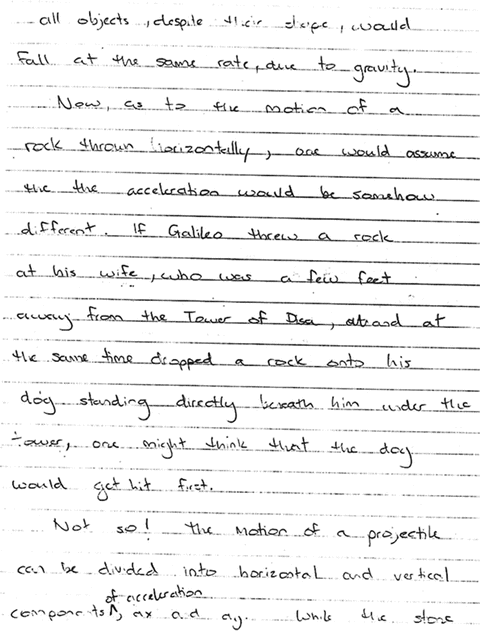 all objects, despite their shape, would
fall at the same rate, due to gravity.
Now, as to the motion of a
rock thrown horizontally, one would assume
the the acceleration would be somehow
different. If Galileo threw a rock
at his wife, who was a few feet
away from the Tower of Pisa, and at
the same time dropped a rock onto his
dog standing directly beneath him under the
tower, one might think that the dog
would get hit first.
Not so! The motion of a projectile
can be divided into horizontal and vertical
of acceleration
components ^, ax and ay. While the stone